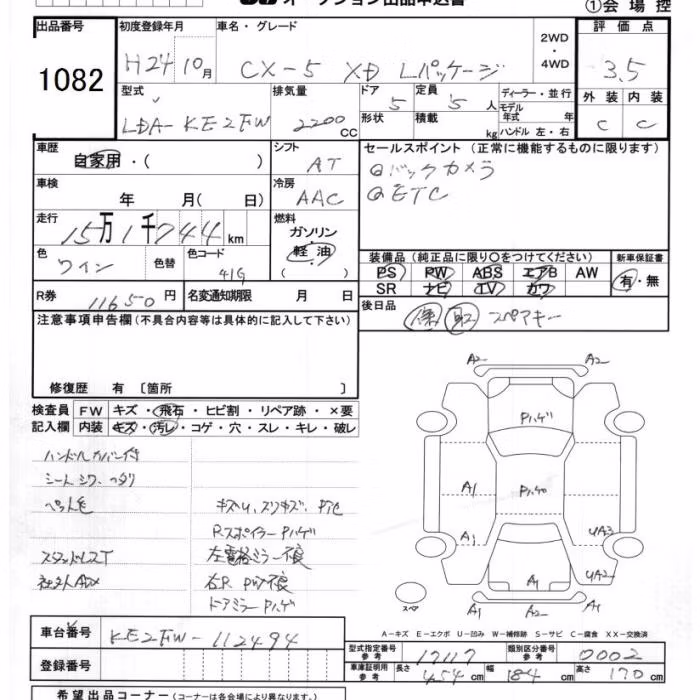 オークション出品申込書 ①会場控
出品番号 初度登録年月 車名・グレード 評価点
1082 H24 10月 CX-5 XD Lパッケージ 2WD・4WD 3.5
型式 排気量 ドア 定員 ディーラー・並行 外装 内装
LDA-KE2FW 2200 CC 5 5人 モデル年式 年 C C
形状 積載 kg ハンドル 左・右
車歴 シフト セールスポイント(正常に機能するものに限ります)
自家用・( ) AT ②バックカメラ
車検 冷房 ②ETC
年 月( 日) AAC
走行 燃料
15万1千744 km ガソリン・軽油
色 色替 色コード 装備品(純正品に限り〇をつけてください) 新車保証書
ワイン 41G PS PW ABS エアB AW 有・無
SR ナビ TV カワ
R券 11650円 名変通知期限 月 日 後日品
保 取 スペアキー
注意事項申告欄(不具合内容等は具体的に記入して下さい)
修復歴 有〔箇所 〕
検査員 FW キズ・飛石・ヒビ割・リペア跡・×要
記入欄 内装 キズ・汚レ・コゲ・穴・スレ・キレ・破レ
ハンドルカバー付
シートシワ、ヘタリ
ペット毛 キズU、スリキズ、P色
Rスポイラー Pハゲ
スタッドレスT 左電格ミラー不良
社外AW 右R PW不良
ドアミラーPハゲ
A2 A2
Pハゲ
A1 Pハゲ
A1 UA3
UA2
A1
A1 A2
スペア
A-キズ E-エクボ U-凹み W-補修跡 S-サビ C-腐食 XX-交換済
車台番号 KE2FW-112494
型式指定番号 参考 17117 類別区分番号 参考 0002
登録番号 車庫証明用 参考 長さ 454cm 幅 184cm 高さ 170cm
希望出品コーナー(コーナーは各会場により異なります。)